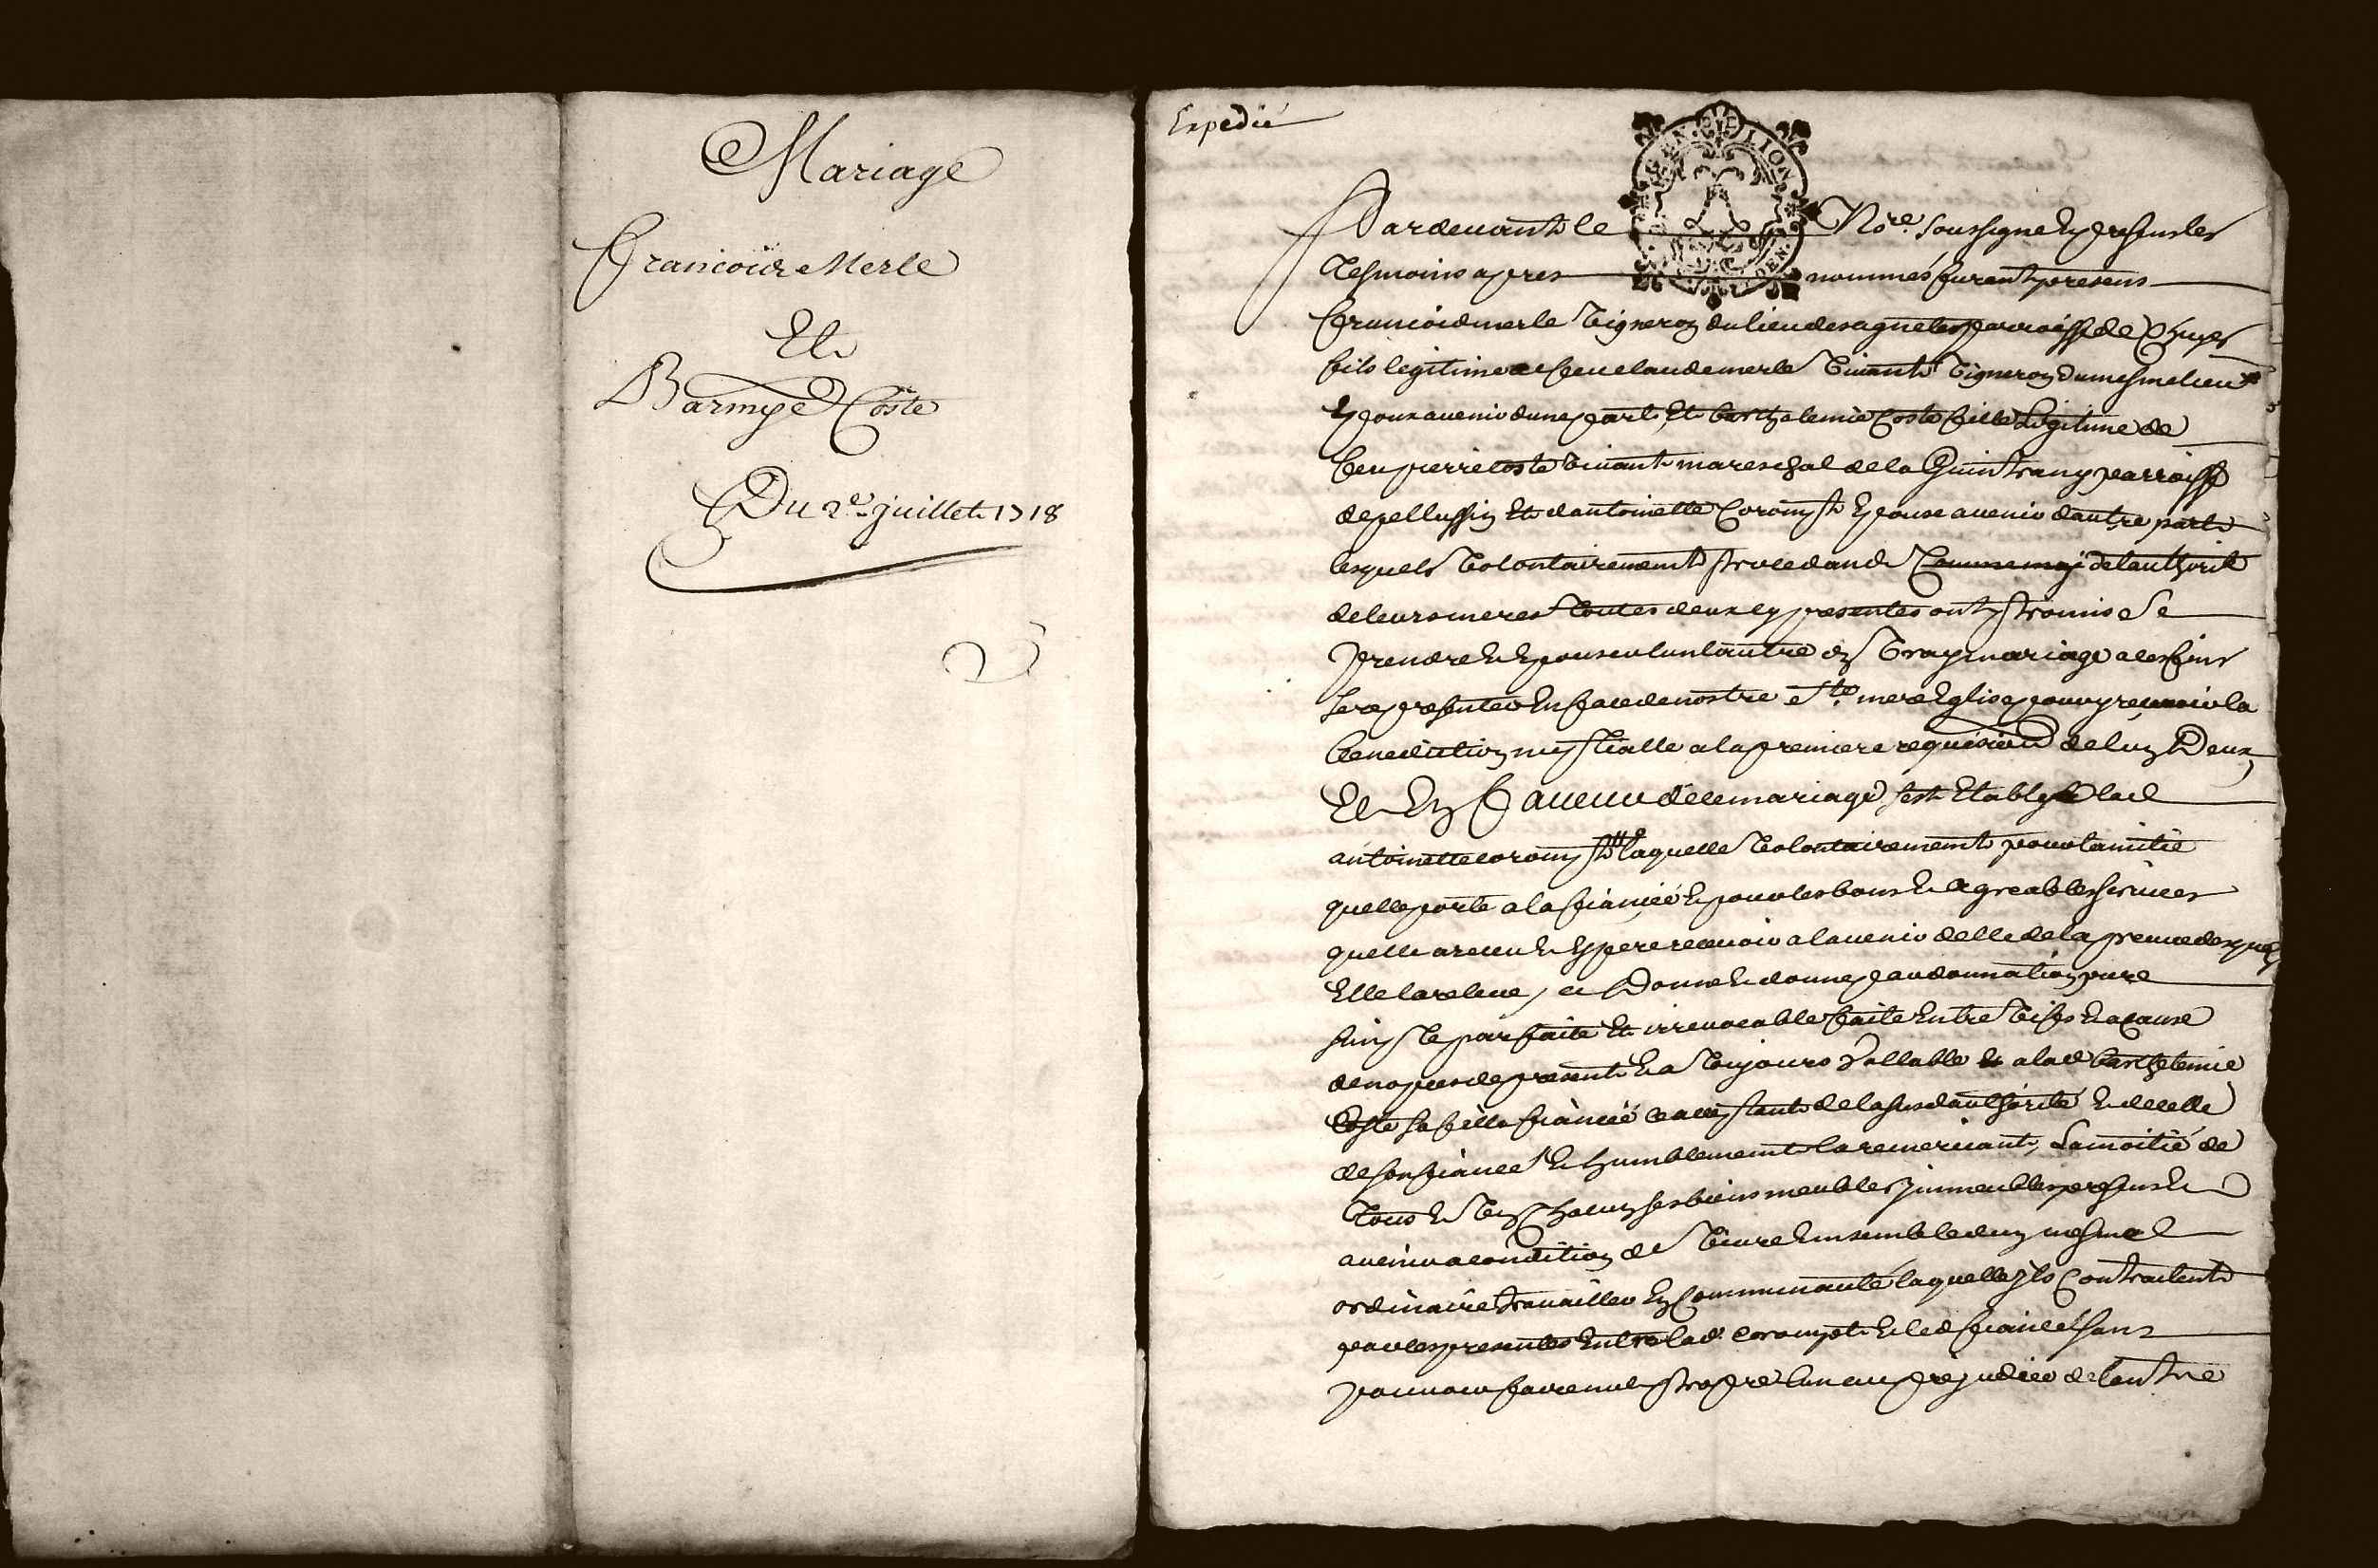 Mariage
François Merle
Et
Barmye Coste
Du 2e juillet 1718
Expedié
GEN. D LION
Pardevant le No.re soussigne Et presens les
tesmoins apres nommés furent presens
françois merle vigneron du lieu de parroisse de Chuyes
fils legitime de feu claude merle vivant vigneron du mesme lieu
Epoux avenir dune part, Et barthelemie Coste fille Legitime de
feu pierre coste vivant mareschal de la Guintrany parroisse
de pellussin Et dantoinette Coromp.t Epouse avenir dautre part
lesquels volontairement procedans de lauthorité
de leurs meres toutes deux cy presentes ont promis Se
prendre Et Epouser lun lautre en vray mariage a les fins
se representer En face de nostre S.te mere Eglise pour y recevoir la
benediction nuptialle a la premiere requisition de lun Deux
Et En faveur de ce mariage sest Establye lad
antoinette laquelle volontairement pour lamitié
quelle porte a la fiancée Et pour les bons Et agreables services
quelle a receu Et Espere recevoir a lavenir delle de la preuve desquels
Elle la releve, a Donné Et donne par donnation pure
simple parfaite Et irrevocable faite Entre vifs Et a cause
de nopces de present Et a toujours vallable a lad barthelemie
Coste sa fille fiancée acceptante de la susd authorité Et de celle
de son fiancé Et humblement la remerciant, La moitié de
tous Et un Chacun ses biens meubles jmmeubles presens Et
avenir a condition de vivre Ensemble dun mesme
ordinaire travailler En Communauté laquelle jls Contractent
par les presentes Entre lad. Corompt Et led fiancé sans
pouvoir faire nul propre lun au prejudice de lautre